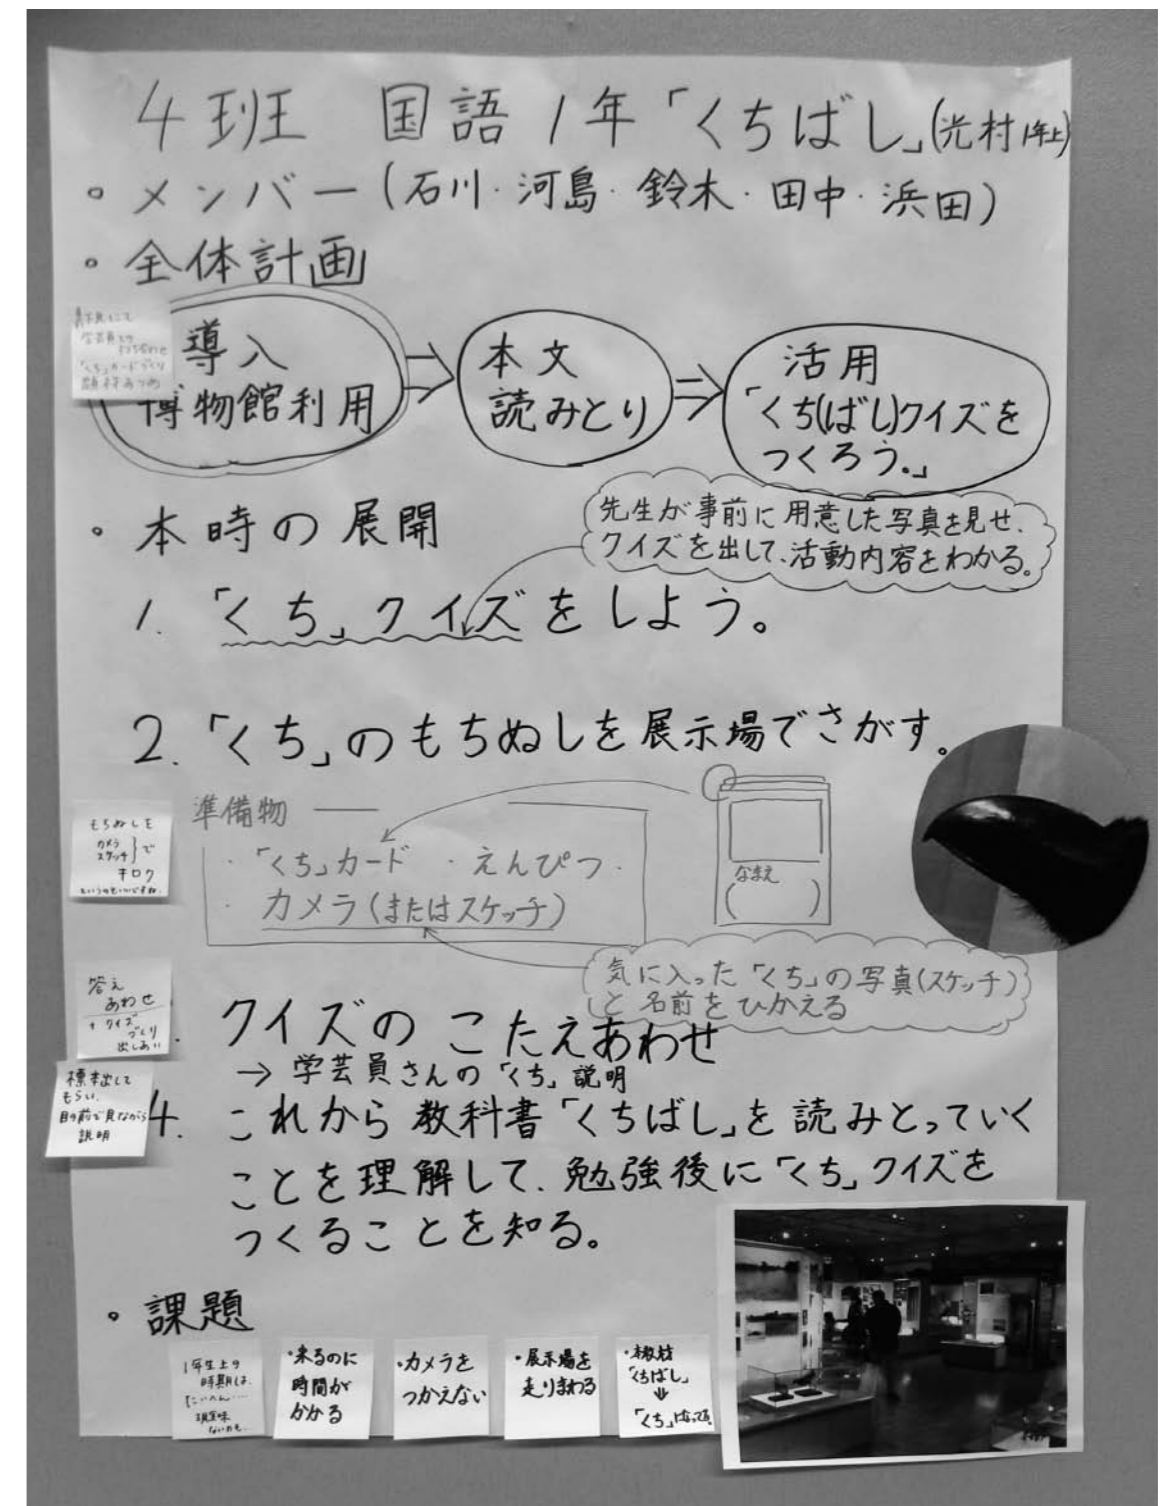 4班 国語1年「くちばし」(光村1年上)
・メンバー(石川・河島・鈴木・田中・浜田)
・全体計画
学芸員との
打ち合わせ
「くち」カードづくり
題材あつめ
導入
博物館利用
⇒
本文
読みとり
⇒
活用
「くち(ばし)クイズを
つくろう。」
・本時の展開
先生が事前に用意した写真を見せ、
クイズを出して、活動内容をわかる。
1. 「くち」クイズをしよう。
2. 「くち」のもちぬしを展示場でさがす。
準備物
・「くち」カード ・えんぴつ・
・カメラ(またはスケッチ)
なまえ
( )
もちぬしを
カメラ
スケッチ}で
キロク
というのもいいですね。
気に入った「くち」の写真(スケッチ)
と名前をひかえる
答え
あわせ
+クイズ
づくり
出しあい
. クイズのこたえあわせ
→ 学芸員さんの「くち」説明
標本出して
もらい、
目の前で見ながら
説明
4. これから教科書「くちばし」を読みとっていく
ことを理解して、勉強後に「くち」クイズを
つくることを知る。
・課題
1年生上の
時期は、
たいへん……
現実味
ないかも。
・来るのに
時間が
かかる
・カメラを
つかえない
・展示場を
走りまわる
・本教材
「くちばし」
⇓
「くち」